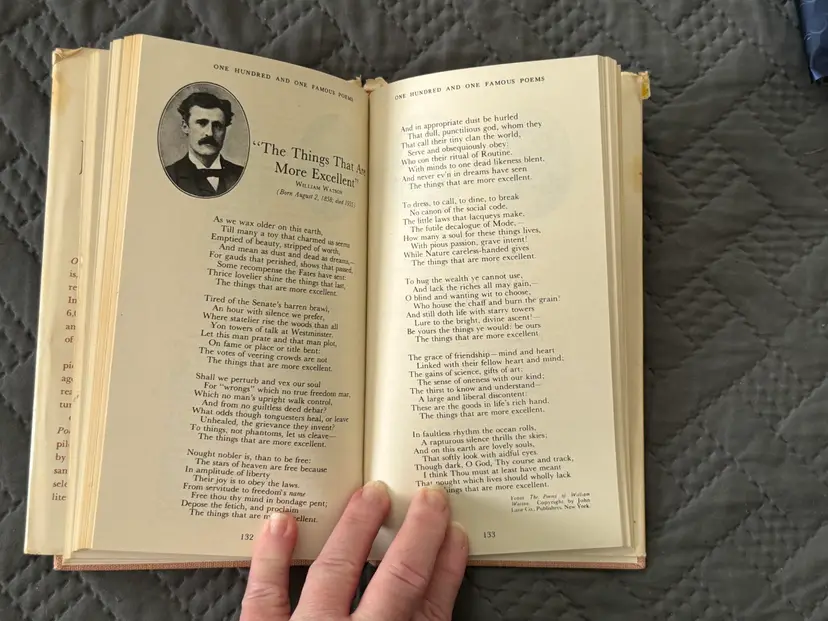 ONE HUNDRED AND ONE FAMOUS POEMS
"The Things That Are
More Excellent"
WILLIAM WATSON
(Born August 2, 1858; died 1935)
As we wax older on this earth,
Till many a toy that charmed us seems
Emptied of beauty, stripped of worth,
And mean as dust and dead as dreams,—
For gauds that perished, shows that passed,
Some recompense the Fates have sent:
Thrice lovelier shine the things that last,
The things that are more excellent.
Tired of the Senate's barren brawl,
An hour with silence we prefer,
Where statelier rise the woods than all
Yon towers of talk at Westminster.
Let this man prate and that man plot,
On fame or place or title bent:
The votes of veering crowds are not
The things that are more excellent.
Shall we perturb and vex our soul
For "wrongs" which no true freedom mar,
Which no man's upright walk control,
And from no guiltless deed debar?
What odds though tonguesters heal, or leave
Unhealed, the grievance they invent?
To things, not phantoms, let us cleave—
The things that are more excellent.
Nought nobler is, than to be free:
The stars of heaven are free because
In amplitude of liberty
Their joy is to obey the laws.
From servitude to freedom's name
Free thou thy mind in bondage pent;
Depose the fetich, and proclaim
The things that are more excellent.
132
ONE HUNDRED AND ONE FAMOUS POEMS
And in appropriate dust be hurled
That dull, punctilious god, whom they
That call their tiny clan the world,
Serve and obsequiously obey:
Who con their ritual of Routine,
With minds to one dead likeness blent,
And never ev'n in dreams have seen
The things that are more excellent.
To dress, to call, to dine, to break
No canon of the social code,
The little laws that lacqueys make,
The futile decalogue of Mode,—
How many a soul for these things lives,
With pious passion, grave intent!
While Nature careless-handed gives
The things that are more excellent.
To hug the wealth ye cannot use,
And lack the riches all may gain,—
O blind and wanting wit to choose,
Who house the chaff and burn the grain!
And still doth life with starry towers
Lure to the bright, divine ascent!—
Be yours the things ye would: be ours
The things that are more excellent.
The grace of friendship—mind and heart
Linked with their fellow heart and mind;
The gains of science, gifts of art;
The sense of oneness with our kind;
The thirst to know and understand—
A large and liberal discontent:
These are the goods in life's rich hand,
The things that are more excellent.
In faultless rhythm the ocean rolls,
A rapturous silence thrills the skies;
And on this earth are lovely souls,
That softly look with aidful eyes.
Though dark, O God, Thy course and track,
I think Thou must at least have meant
That nought which lives should wholly lack
things that are more excellent.
From The Poems of William
Watson. Copyright by John
Lane Co., Publishers, New York.
133